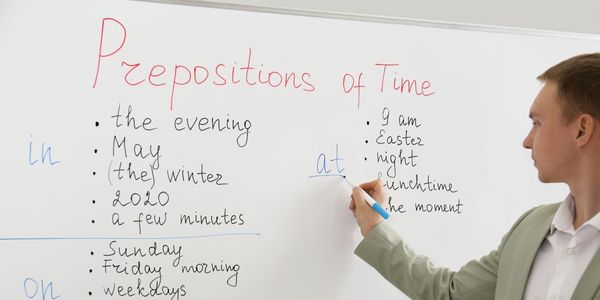 Prepositions of Time
in
• the evening
• May
• (the) winter
• 2020
• a few minutes
at
• 9 am
• Easter
• night
lunchtime
the moment
on
• Sunday
• Friday morning
• weekdays